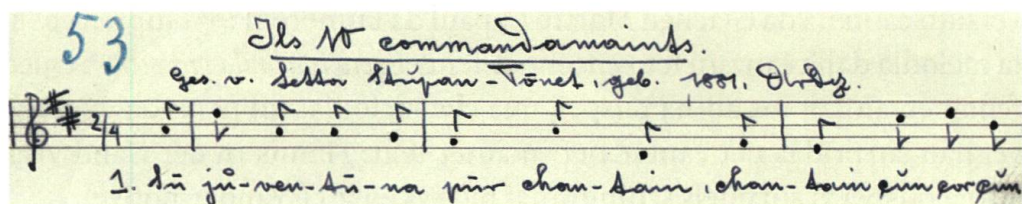 53
Ils 10 commandamaints.
Ges. v. Setta Stupan-Tönet, geb. 1881, Ardez.
2/4
1. Sü jü-ven-tü-na pür chan-tain, chan-tain